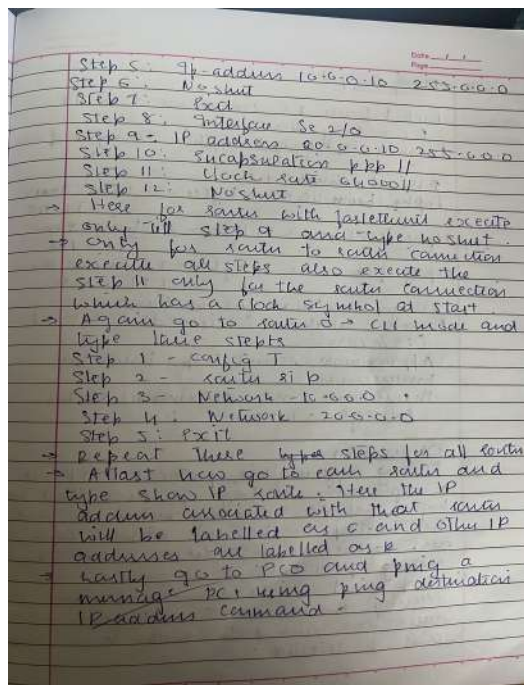 Date / /
Page
Step 5: Ip-address 10.0.0.10 255.0.0.0
Step 6: No shut
Step 7: Exit
Step 8: Interface Se 2/0
Step 9 - IP address 20.0.0.10 255.0.0.0
Step 10: Encapsulation ppp //
Step 11: Clock rate 64000 //
Step 12: No shut
→ Here for router with fastethernet execute
only till step 9 and type no shut.
→ Only for router to router connection
execute all steps also execute the
step 11 only for the router connection
which has a clock symbol at start.
→ Again go to router 0 → CLI mode and
type these steps
Step 1 - config T
Step 2 - router rip
Step 3 - Network - 10.0.0.0
Step 4: Network - 20.0.0.0
Step 5: Exit
→ Repeat these steps for all router
→ At last now go to each router and
type show IP route. Here the IP
address associated with that router
will be labelled as C and other IP
addresses are labelled as R
→ Lastly go to PC0 and ping a
message PC1 using ping destination
IP address command.